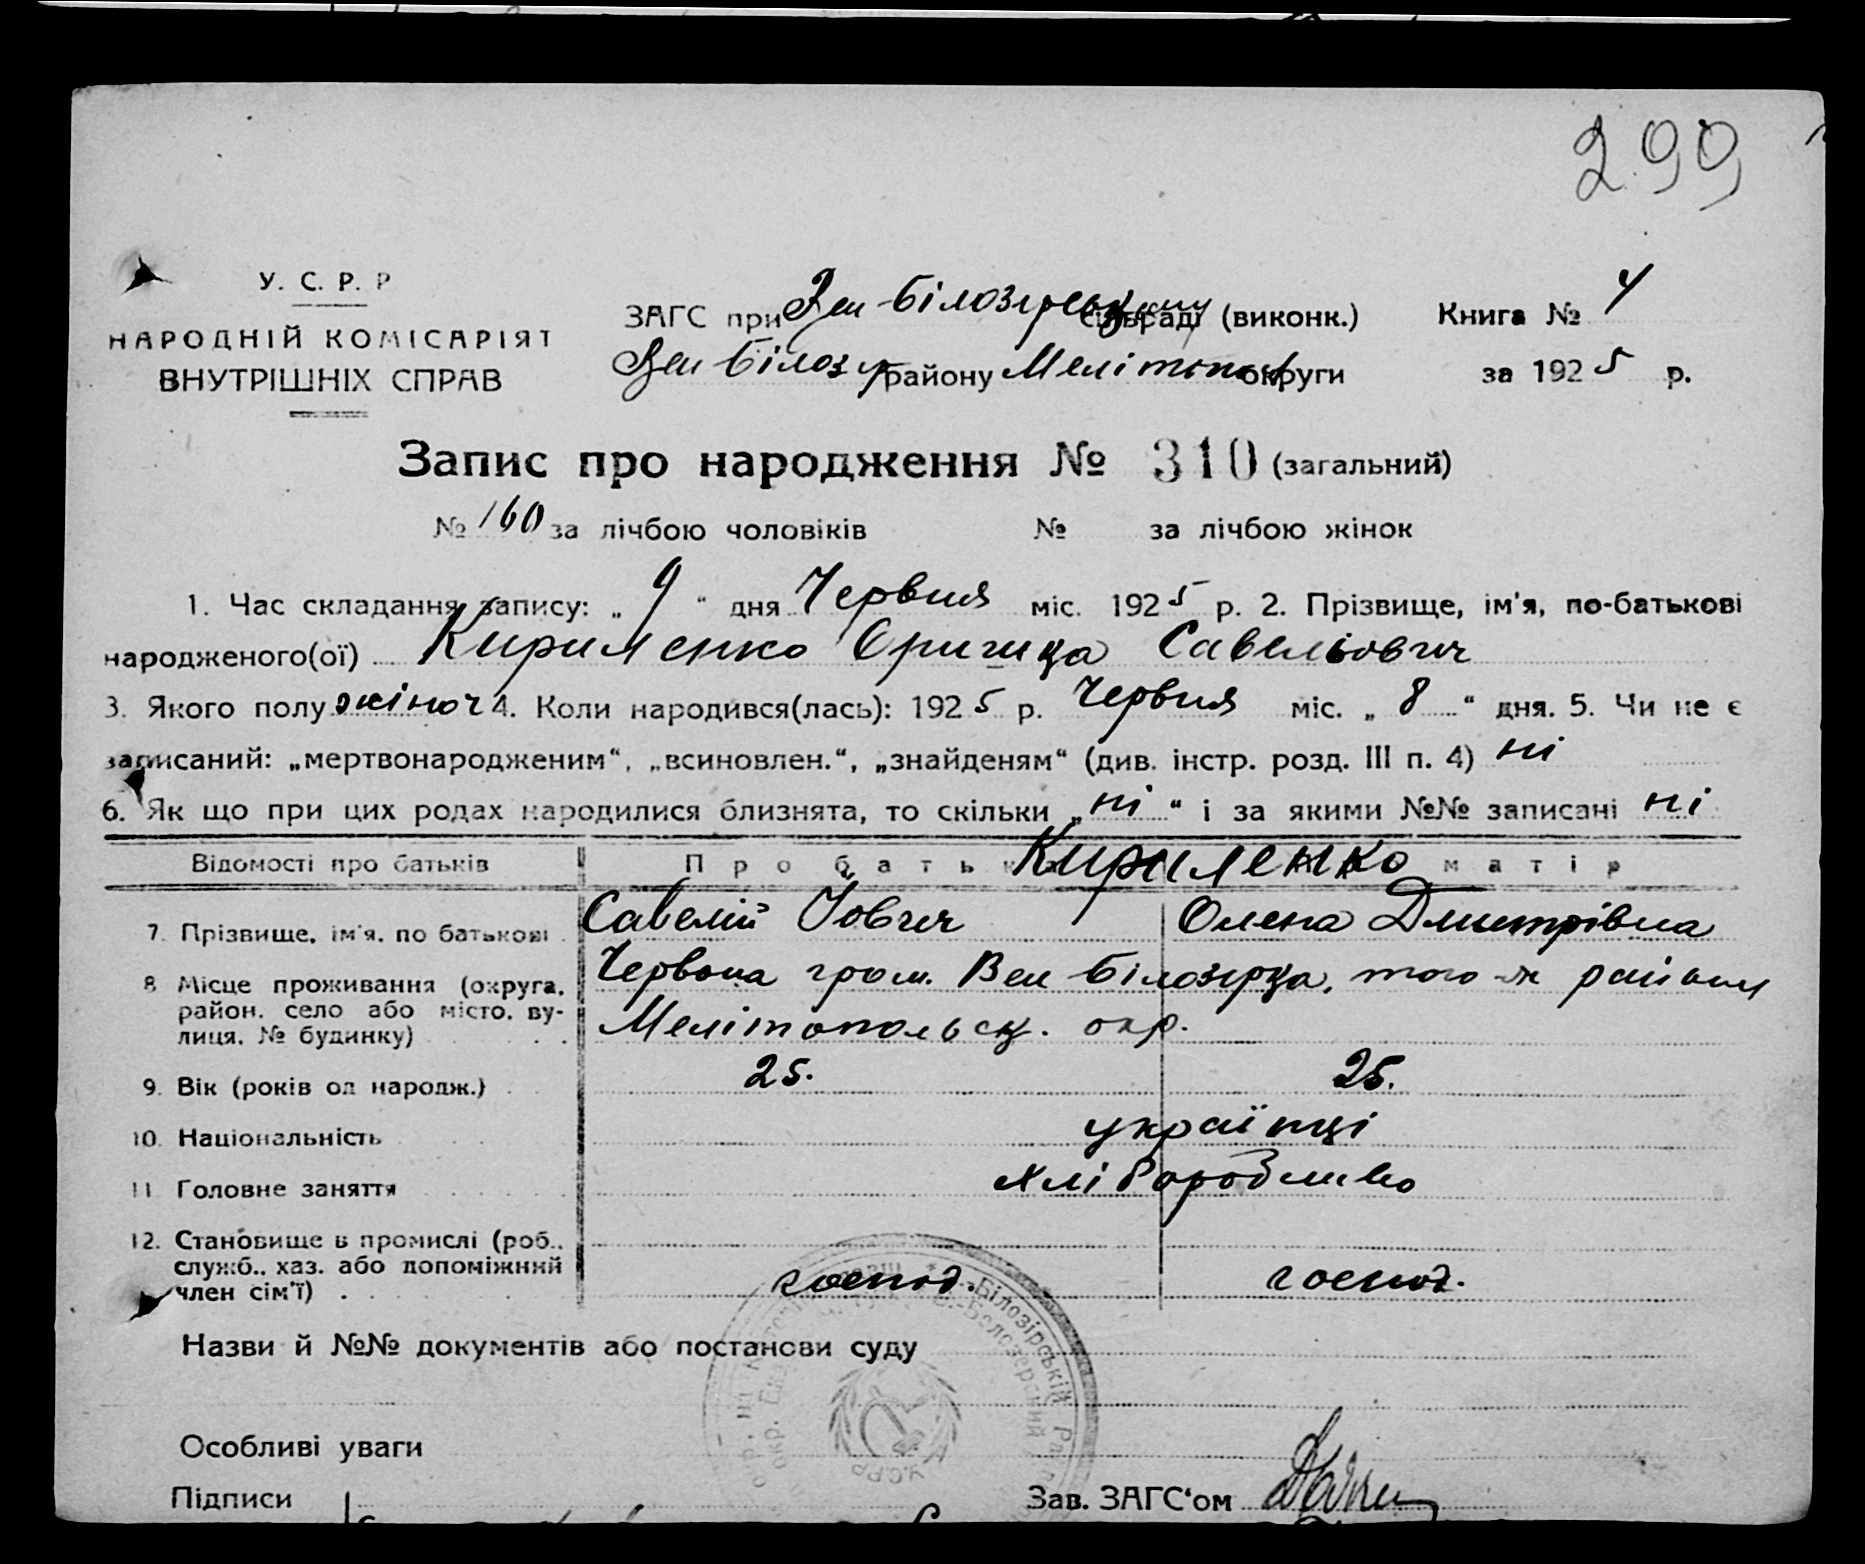 299
У. С. Р. Р
НАРОДНІЙ КОМІСАРІЯТ
ВНУТРІШНІХ СПРАВ
ЗАГС при Вел Білозирському сільраді (виконк.) Книга № 4
Вел Білозир району Мелітопол округи за 1925 р.
Запис про народження № 310 (загальний)
№ 160 за лічбою чоловіків № за лічбою жінок
1. Час складання запису: „ 9 “ дня Червня міс. 1925 р. 2. Прізвище, ім'я, по-батькові
народженого(ої) Кириленко Савельович
3. Якого полу жіноч 4. Коли народився(лась): 1925 р. Червня міс. „ 8 “ дня. 5. Чи не є
записаний: „мертвонародженим“, „всиновлен.“, „знайденям“ (див. інстр. розд. III п. 4) ні
6. Як що при цих родах народилися близнята, то скільки „ ні “ і за якими №№ записані ні
Відомості про батьків Про батьк Кириленко матір
7. Прізвище, ім'я, по батькові Савелій Йович Олена Дмитрівна
8 Місце проживання (округа, район, село або місто, вулиця, № будинку) Червона гром. Вел Білозирка, того ж району
Мелітопольськ. окр.
9. Вік (років од народж.) 25. 25.
10. Національність українці
11 Головне заняття хліборобство
12. Становище в промислі (роб., служб., хаз. або допоміжний член сім'ї) господ. господ.
Назви й №№ документів або постанови суду
Білозірській
У.С.Р.Р.
Особливі уваги
Підписи Зав. ЗАГС‘ом